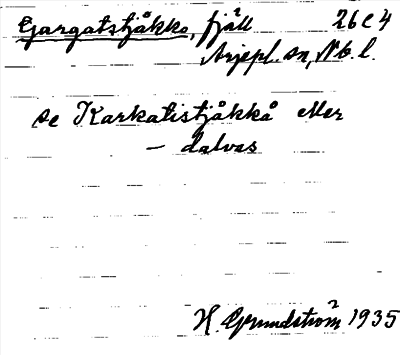 Gargatstjåkko, fjäll 26 C 4
Arjepl. sn, Nb. l.
se Karkatistjåkkå eller
– dalvas
H. Grundström 1935